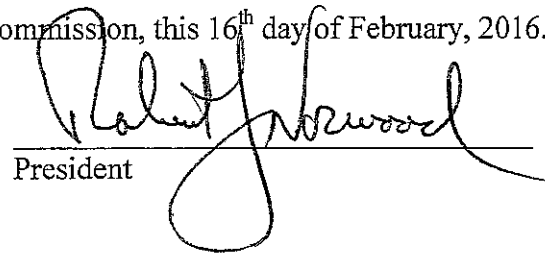 ommission, this 16th day of February, 2016.
Robert J Norwood
President